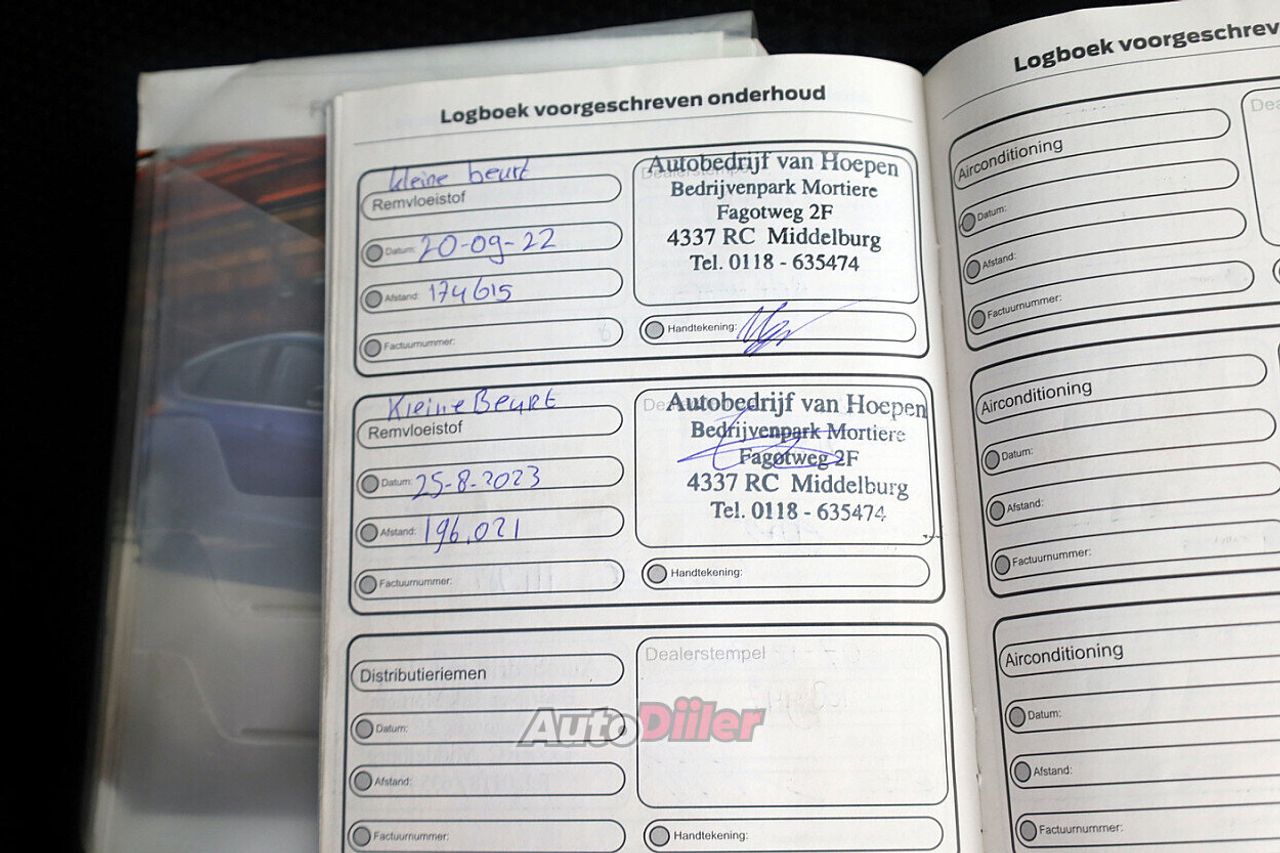 Logboek voorgeschreven onderhoud
kleine beurt
Remvloeistof
Datum: 20-09-22
Afstand: 174615
Factuurnummer:
Autobedrijf van Hoepen
Bedrijvenpark Mortiere
Fagotweg 2F
4337 RC Middelburg
Tel. 0118 - 635474
Handtekening:
Kleine Beurt
Remvloeistof
Datum: 25-8-2023
Afstand: 196.021
Factuurnummer:
Autobedrijf van Hoepen
Bedrijvenpark Mortiere
Fagotweg 2F
4337 RC Middelburg
Tel. 0118 - 635474
Handtekening:
Distributieriemen
Datum:
Afstand:
Factuurnummer:
Dealerstempel
Handtekening:
AutoDiiler
Logboek voorgeschrev
Airconditioning
Datum:
Afstand:
Factuurnummer:
Airconditioning
Datum:
Afstand:
Factuurnummer:
Airconditioning
Datum:
Afstand:
Factuurnummer: